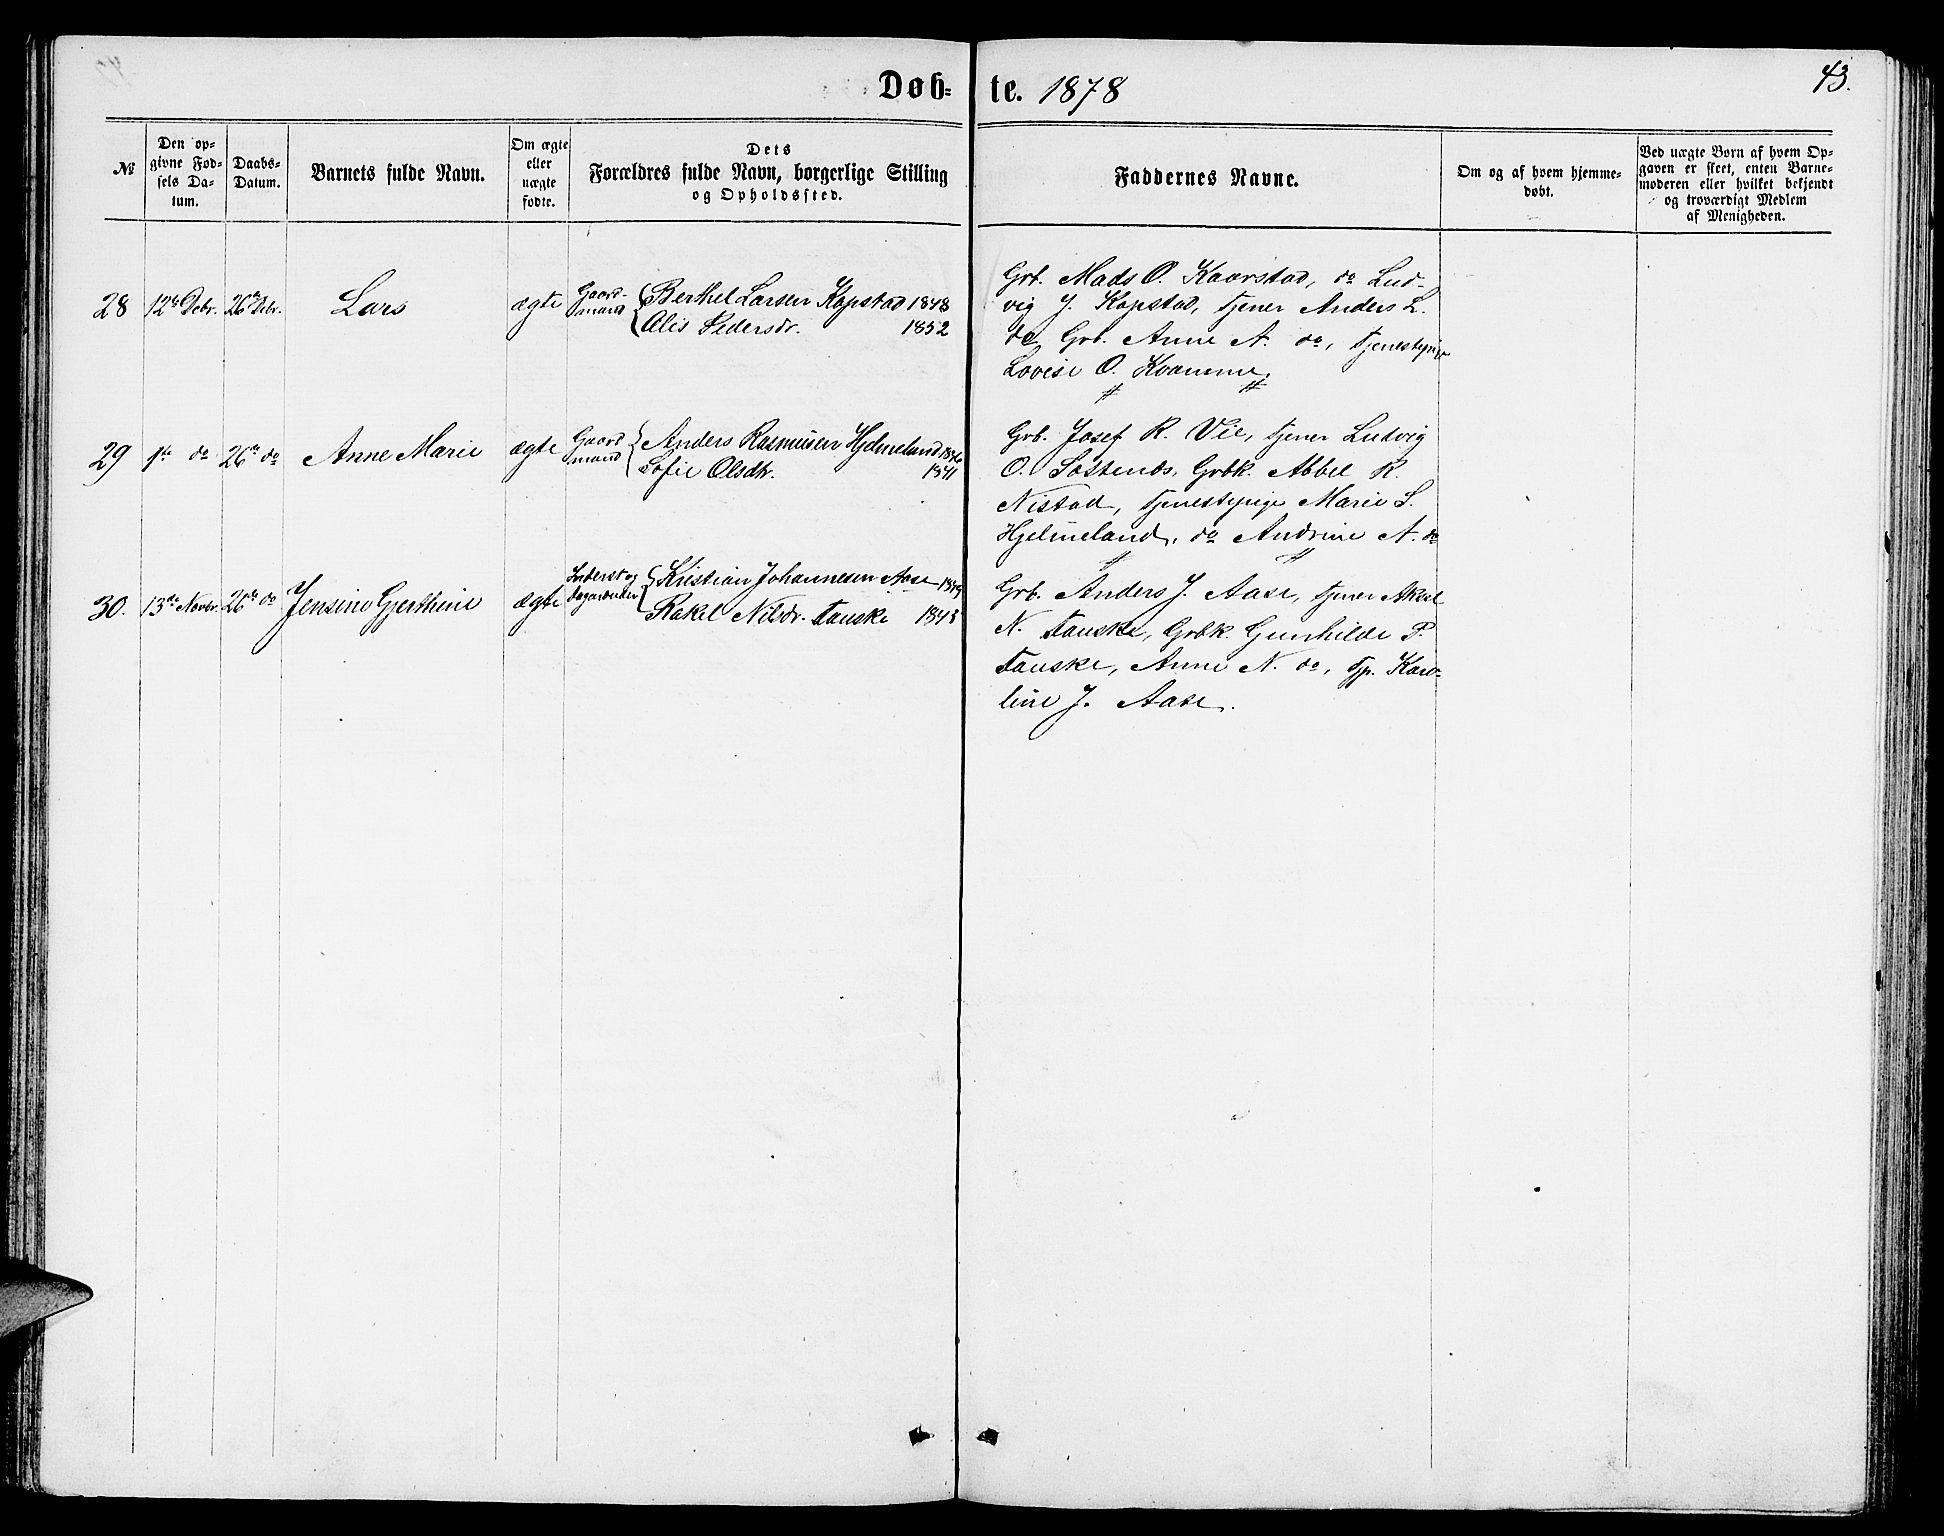 Døb- te. 1878
43.
№
Den op-
givne Fød-
sels Da-
tum.
Daabs-
Datum.
Barnets fulde Navn.
Om ægte
eller
uægte
fødte.
Dets
Forældres fulde Navn, borgerlige Stilling
og Opholdssted.
Faddernes Navne.
Om og af hvem hjemme-
døbt.
Ved uægte Børn af hvem Op-
gaven er skeet, enten Barne-
moderen eller hvilket bekjendt
og troværdigt Medlem
af Menigheden.
28 12te Debr. 26de Debr. Lars ægte
Gaard-
mand
Berthel Larsen Kapstad 1848
Alis Pedersdr. 1852
Grb. Mads O. Kaarstad, do Lud-
vig J. Kapstad, tjener Anders L.
do, Grb. Anne A. do, tjenestepige
Lovise O. Kvamme.
29 1ste do 26de do Anne Marie ægte
Gaard
mand
Anders Rasmusen Hjelmeland 1846
Sofie Olsdtr. 1841
Grb. Josef R. Vie, tjener Ludvig
O. Grbk. Abbel R.
Nistad, tjenestepige Marie S.
Hjelmeland, do Andrine A. do
30. 13de Novbr. 26de do Jensine Gjerthine ægte
Inderst og
Dagarbeider
Kristian Johannesen Aase 1849
Rakel Nilsdr. Fauske 1848
Grb. Anders J. Aase, tjener Aksel
N. Fauske, Grbk. Gunhilde P.
Fauske, Anne N. do, tjp. Karo-
line J. Aase.